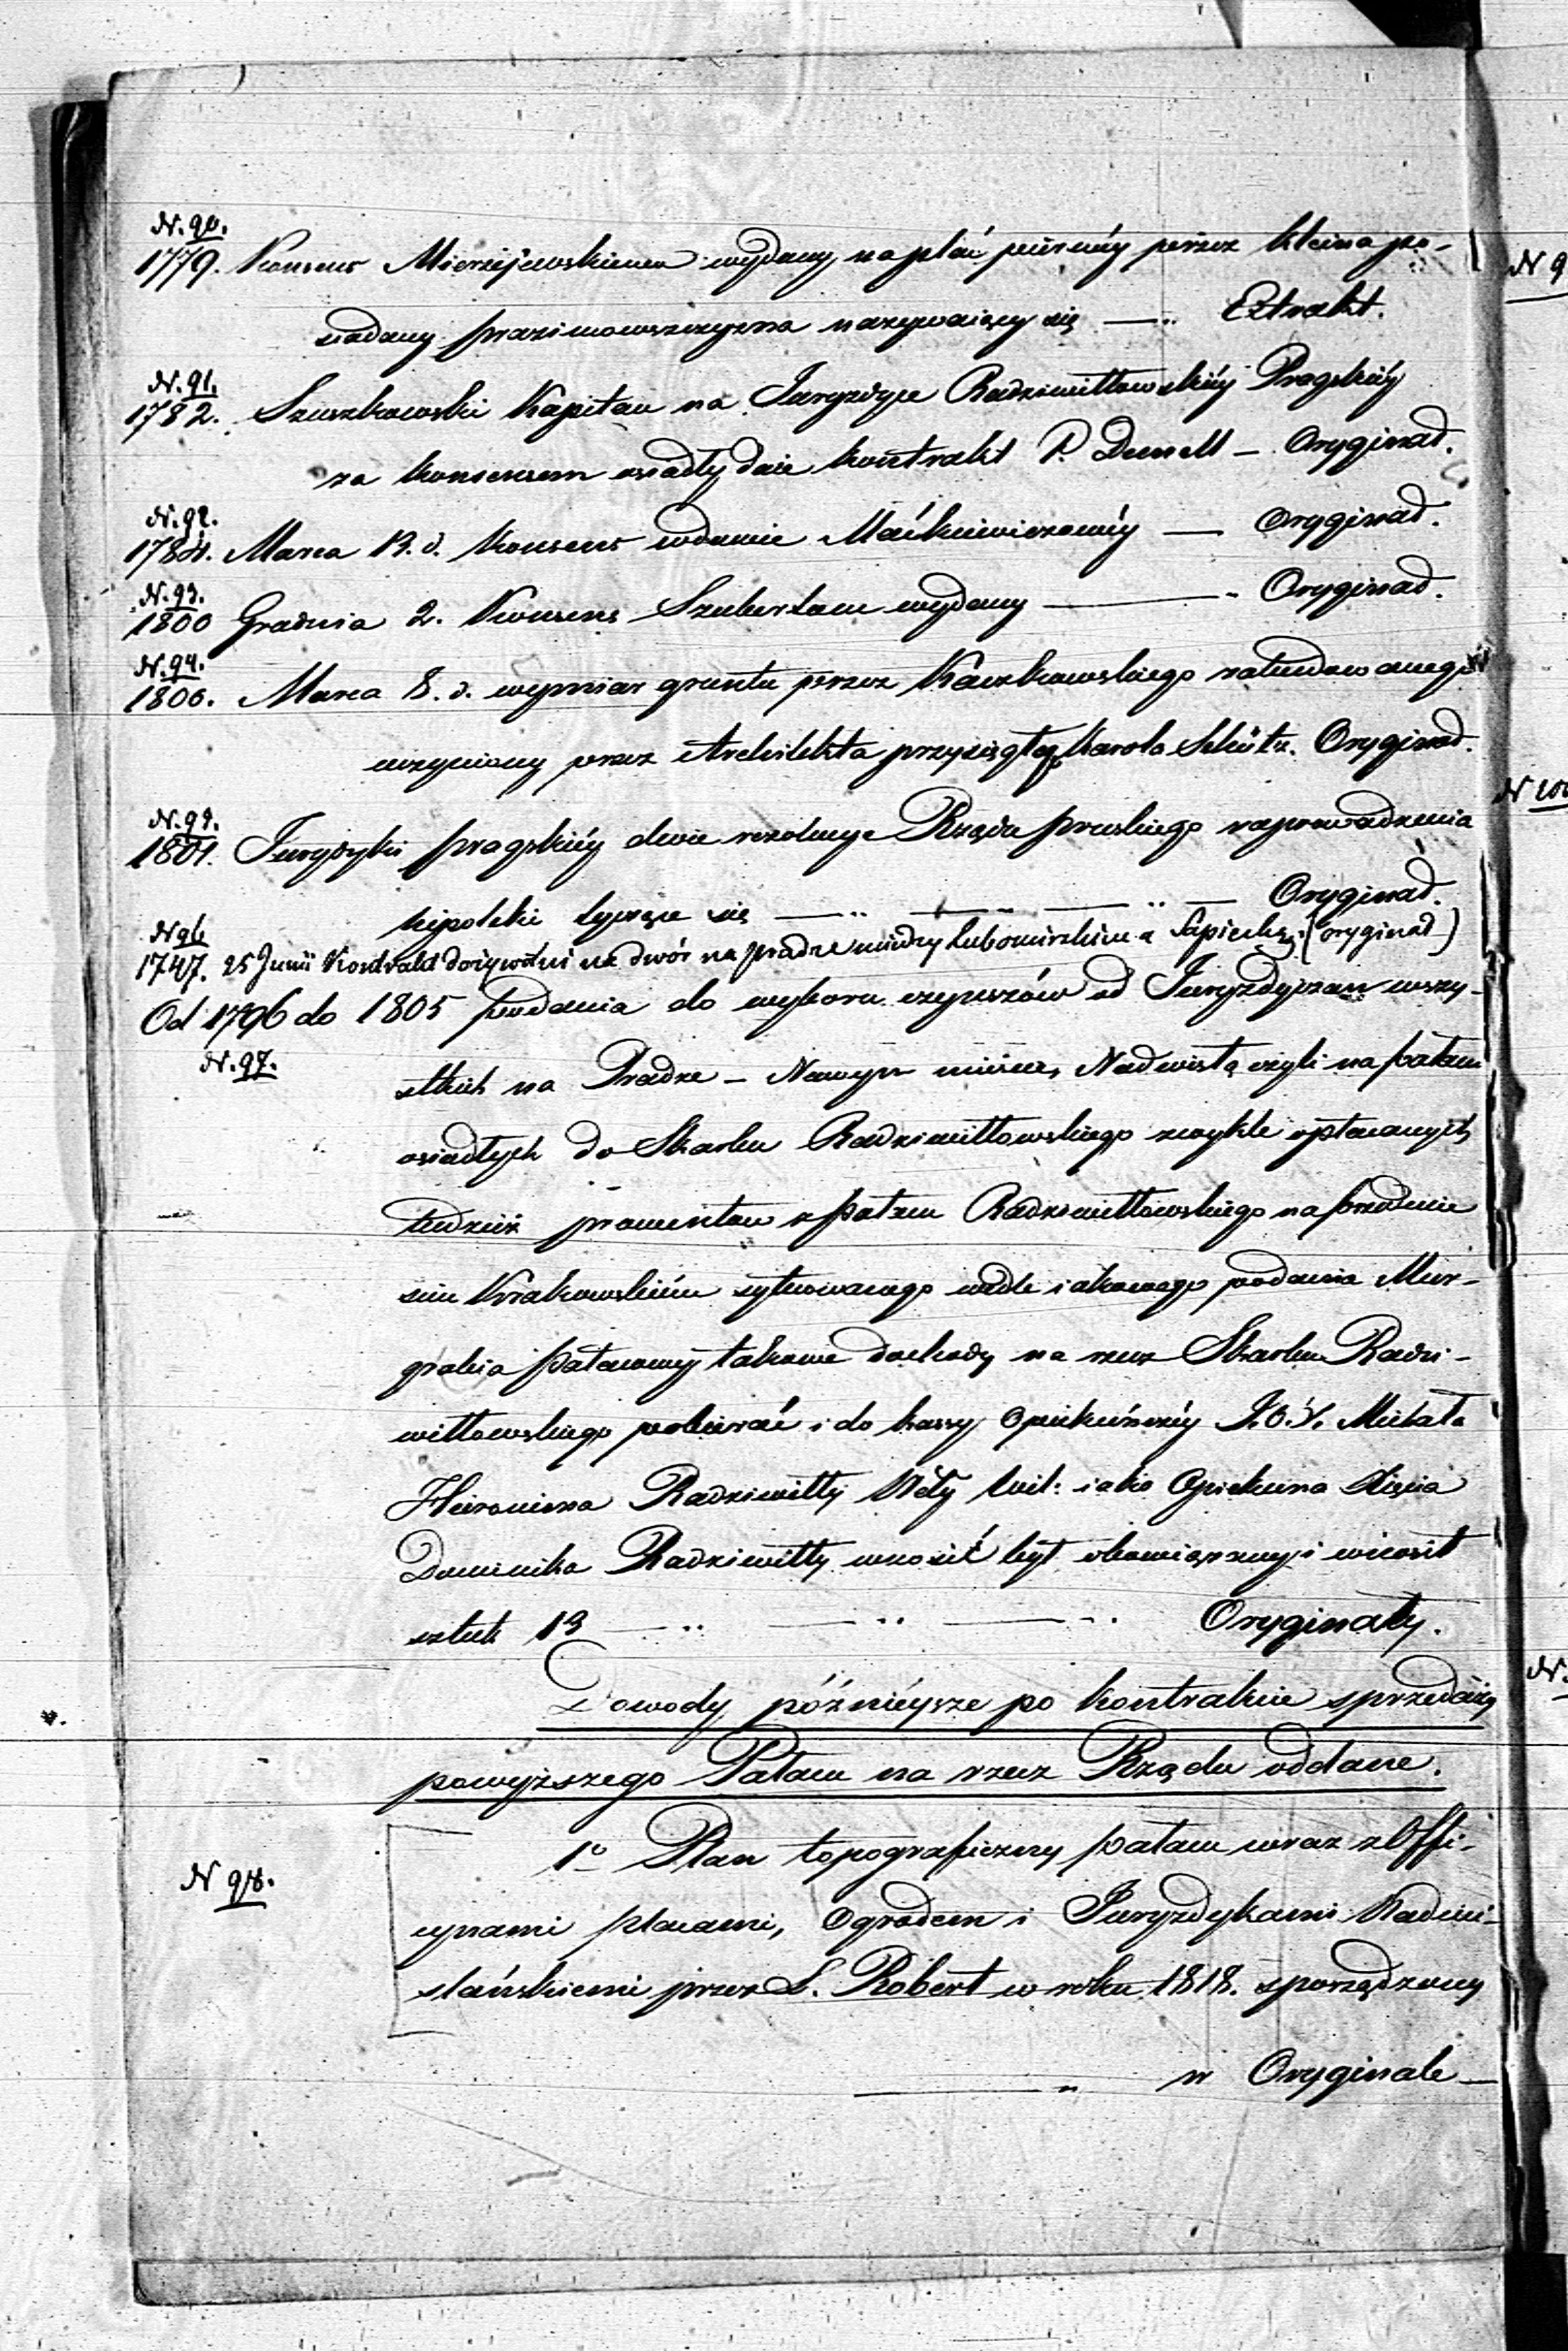 N. 90.
1779. Konsens Mierzejewskiemu wydany na plac pierwéy przez Kleina po-
siadany prazimowszczyzna nazywaiący się —.. Extrakt.
N. 91.
1782. Szuszkowski Kapitan na Juryzdyce Radziwiłłowskiéy Pragskiéy
za konsensem osiadły daie kontrakt P. — Oryginał.
N. 92.
1784. Marca 13. d. Konsens wdowie Maćkiewiczowéy — Oryginał.
N. 93.
1800 Grudnia 2. Konsens Szubertom wydany — Oryginał.
N. 94.
1806. Marca 8. d. wymiar gruntu przez Kaczkowskiego zabudowanego
uczyniony przez Architekta przysięgłego Karola Schütz. Oryginał.
N. 95.
1801. Jurysdyki pragskiéy dwie rezolucye Rządu pruskiego zaprowadzenia
hipoteki tyczące się —.. — .. — .. — Oryginał.
N 96
1747. 25 Junii Kontrakt dożywotni na dwór na pradze między Lubomirskim a Sapiehą (oryginał)
Od 1796 do 1805 podania do wyboru czynszów od Juryzdyczan wszy-
N. 97.
stkich na Pradze — Nowym mieście, Nad wisłą czyli na pałacu
osiadłych do Skarbu Radziwiłłowskiego zwykle opłacanych
tudzież prowentow z pałacu Radziwiłłowskiego na przedmie
ściu Krakowskiém sytuowanego wedle iakowego podania Mur-
grabia pałacowy takowe dochody na rzecz Skarbu Radzi-
wiłłowskiego pobierać i do kassy Opiekuńczéy J.O.X. Michała
Hieronima Radziwiłły Wdy Wil: iako Opiekuna Xięcia
Dominika Radziwiłły wnosić był obowiązany i wnosił
sztuk 13 —.. — .. — .. Oryginały.
Dowody późniéysze po kontrakcie sprzedaży
powyższego Pałacu na rzecz Rządu oddane.
1o Plan topograficzny pałacu wraz z Offi-
N 98.
cynami placami, Ogrodem i Juryzdykami Nadwi-
slańskiemi przez L. Robert w roku 1818. sporządzony
— „ w Oryginale —
N 9
N 100
N.